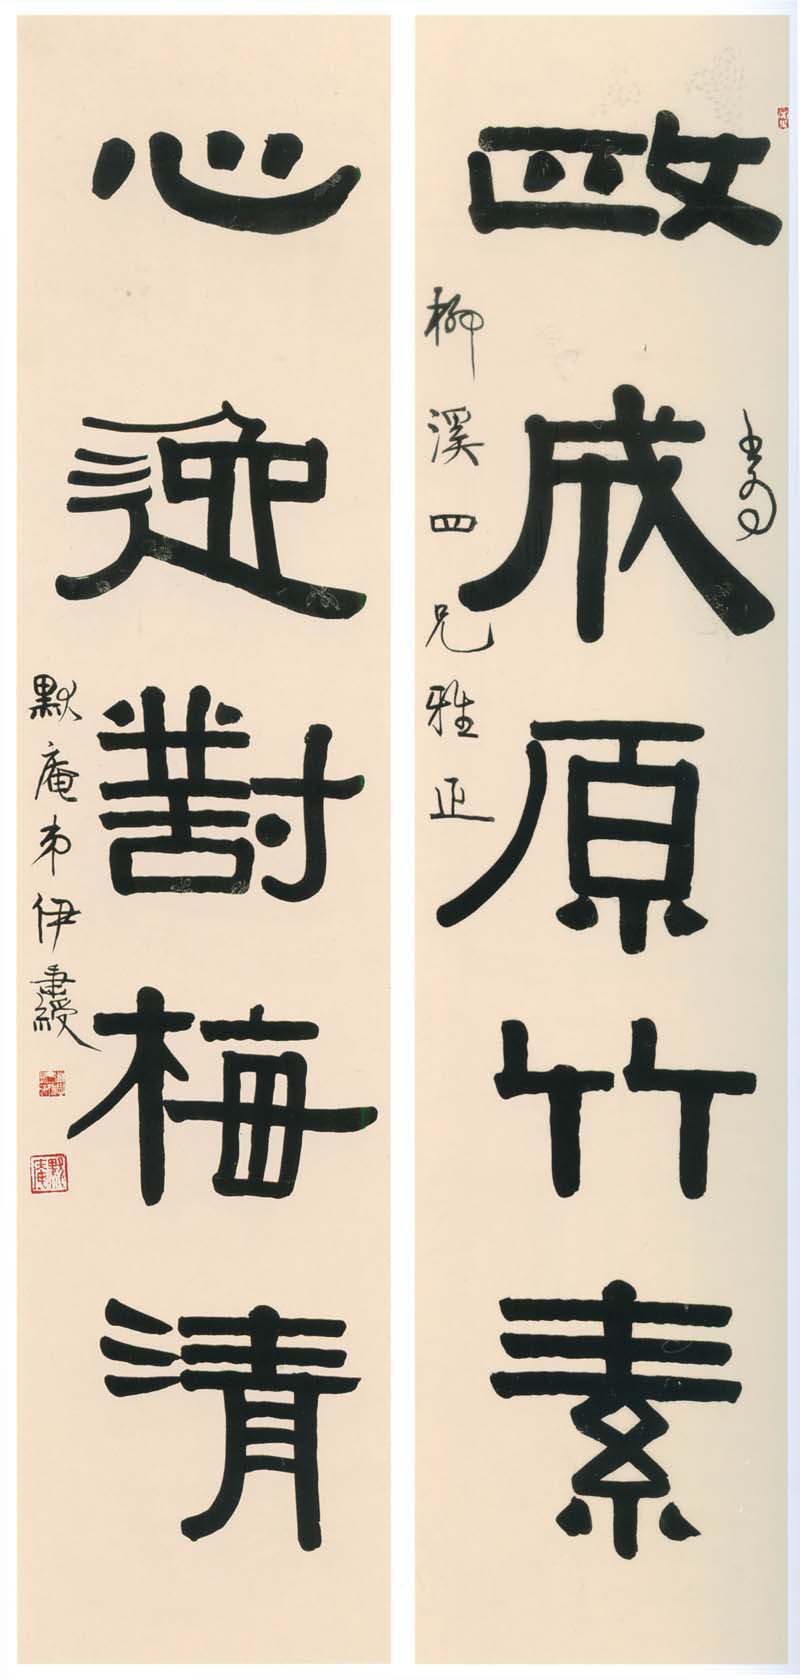 書為
政成原竹素
柳溪四兄雅正
心逸對梅清
默庵弟伊秉綬
默庵